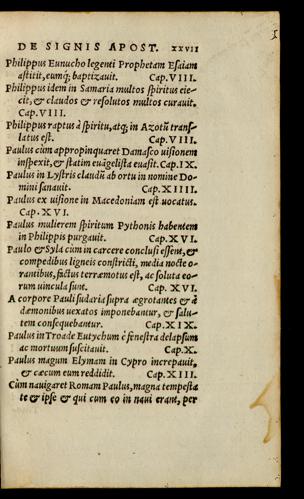 DE SIGNIS APOST. XXVII
Philippus Eunucho legenti Prophetam Esaiam
astitit, eumq́; baptizauit. Cap.VIII.
Philippus idem in Samaria multos spiritus eie-
cit, & claudos & resolutos multos curauit.
Cap.VIII.
Philippus raptus à spiritu, atq; in Azotũ trans-
latus est. Cap.VIII.
Paulus cùm appropinquaret Damasco uisionem
inspexit, & statim euãgelista euasit. Cap.IX.
Paulus in Lystris claudũ ab ortu in nomine Do-
mini sanauit. Cap.XIIII.
Paulus ex uisione in Macedoniam est uocatus.
Cap.XVI.
Paulus mulierem spiritum Pythonis habentem
in Philippis purgauit. Cap.XVI.
Paulo & Syla cùm in carcere conclusi essent, &
compedibus ligneis constricti, media nocte o-
rantibus, factus terræmotus est, ac soluta eo-
rum uincula sunt. Cap. XVI.
A corpore Pauli sudaria supra ægrotantes & à
dæmonibus uexatos imponebantur, & salu-
tem consequebantur. Cap.XIX.
Paulus in Troade Eutychum è fenestra delapsum
ac mortuum suscitauit. Cap.X.
Paulus magum Elymam in Cypro increpauit,
& cæcum eum reddidit. Cap.XIII.
Cùm nauigaret Romam Paulus, magna tempesta
te & ipse & qui cum eo in naui erant, per